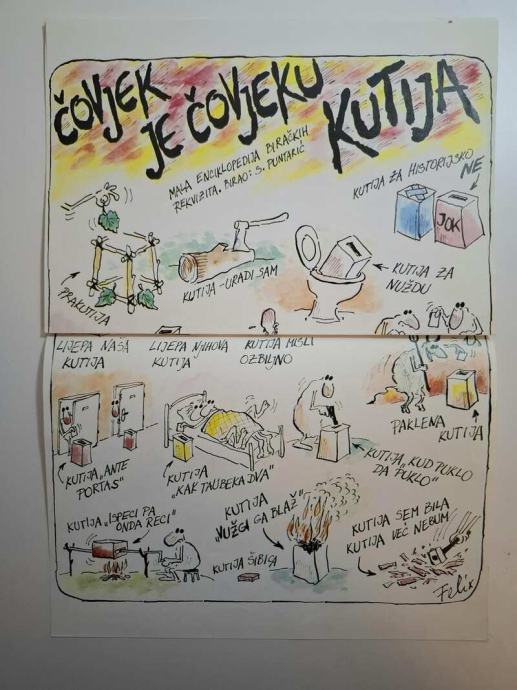 ČOVJEK
JE ČOVJEKU
KUTIJA
MALA ENCIKLOPEDIJA BIRAČKIH
REKVIZITA. BIRAO: S. PUNTARIĆ
KUTIJA ZA HISTORIJSKO
NE
JOK
PRAKUTIJA
KUTIJA-URADI SAM
KUTIJA ZA
NUŽDU
LIJEPA NAŠA
KUTIJA
LIJEPA NJIHOVA
KUTIJA
KUTIJA MISLI
OZBILJNO
PAKLENA
KUTIJA
KUTIJA „ANTE
PORTAS"
KUTIJA
„KAK TAUBEKA DVA"
KUTIJA „KUD PUKLO
DA PUKLO"
KUTIJA „ISPECI PA
ONDA RECI"
KUTIJA
„VUŽGI GA BLAŽ"
KUTIJA SEM BILA
KUTIJA VEĆ NEBUM
KUTIJA ŠIBICA
Felix